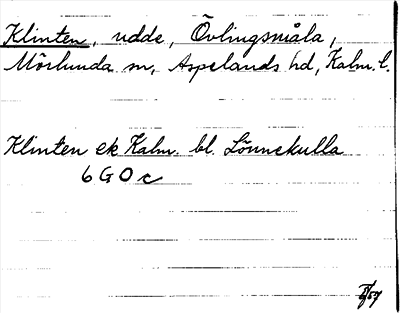 Klinten, udde, Övlingsmåla,
Mörlunda sn, Aspelands hd, Kalm. l.
Klinten ek Kalm. bl. Lönnekulla
6 G O c